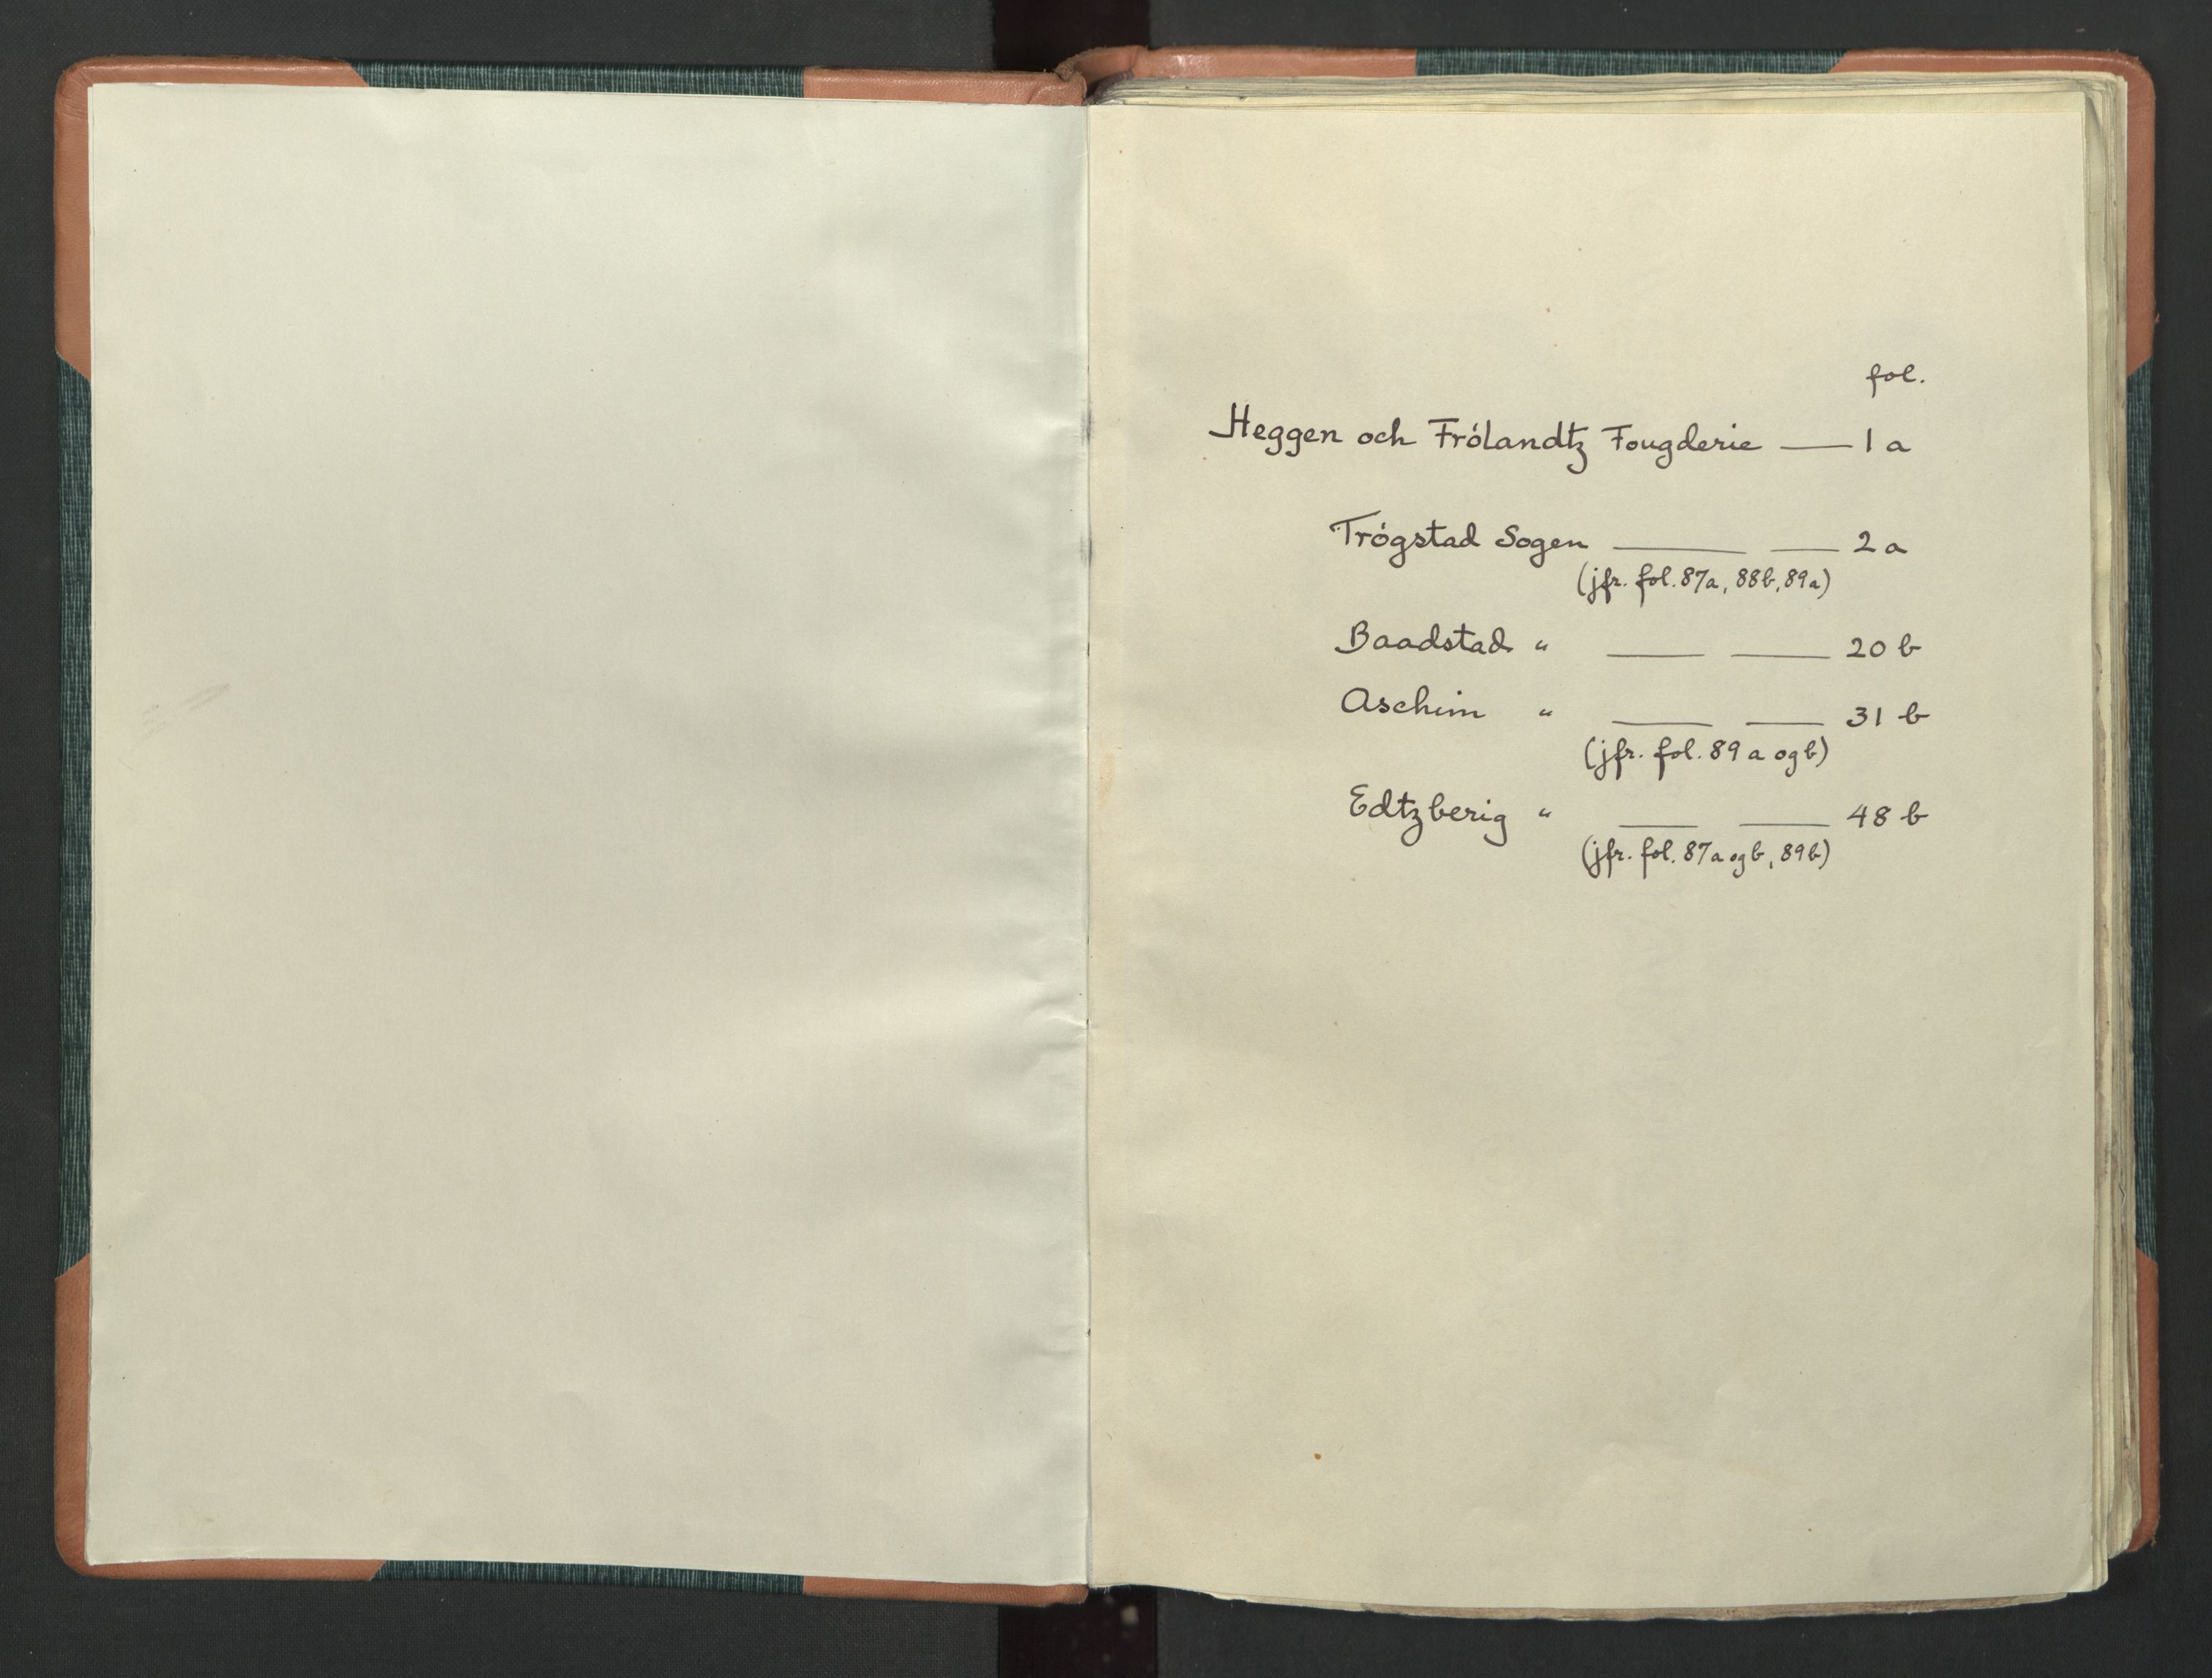 fol.
Heggen och Frólandtz Fougderie — 1 a
Trógstad Sogen — — 2 a
(jfr. fol. 87a, 88b, 89a)
Baadstad " — — 20 b
Aschim " — — 31 b
(jfr. fol. 89 a og b)
Edtzberig " — — 48 b
(jfr. fol. 87a og b, 89b)